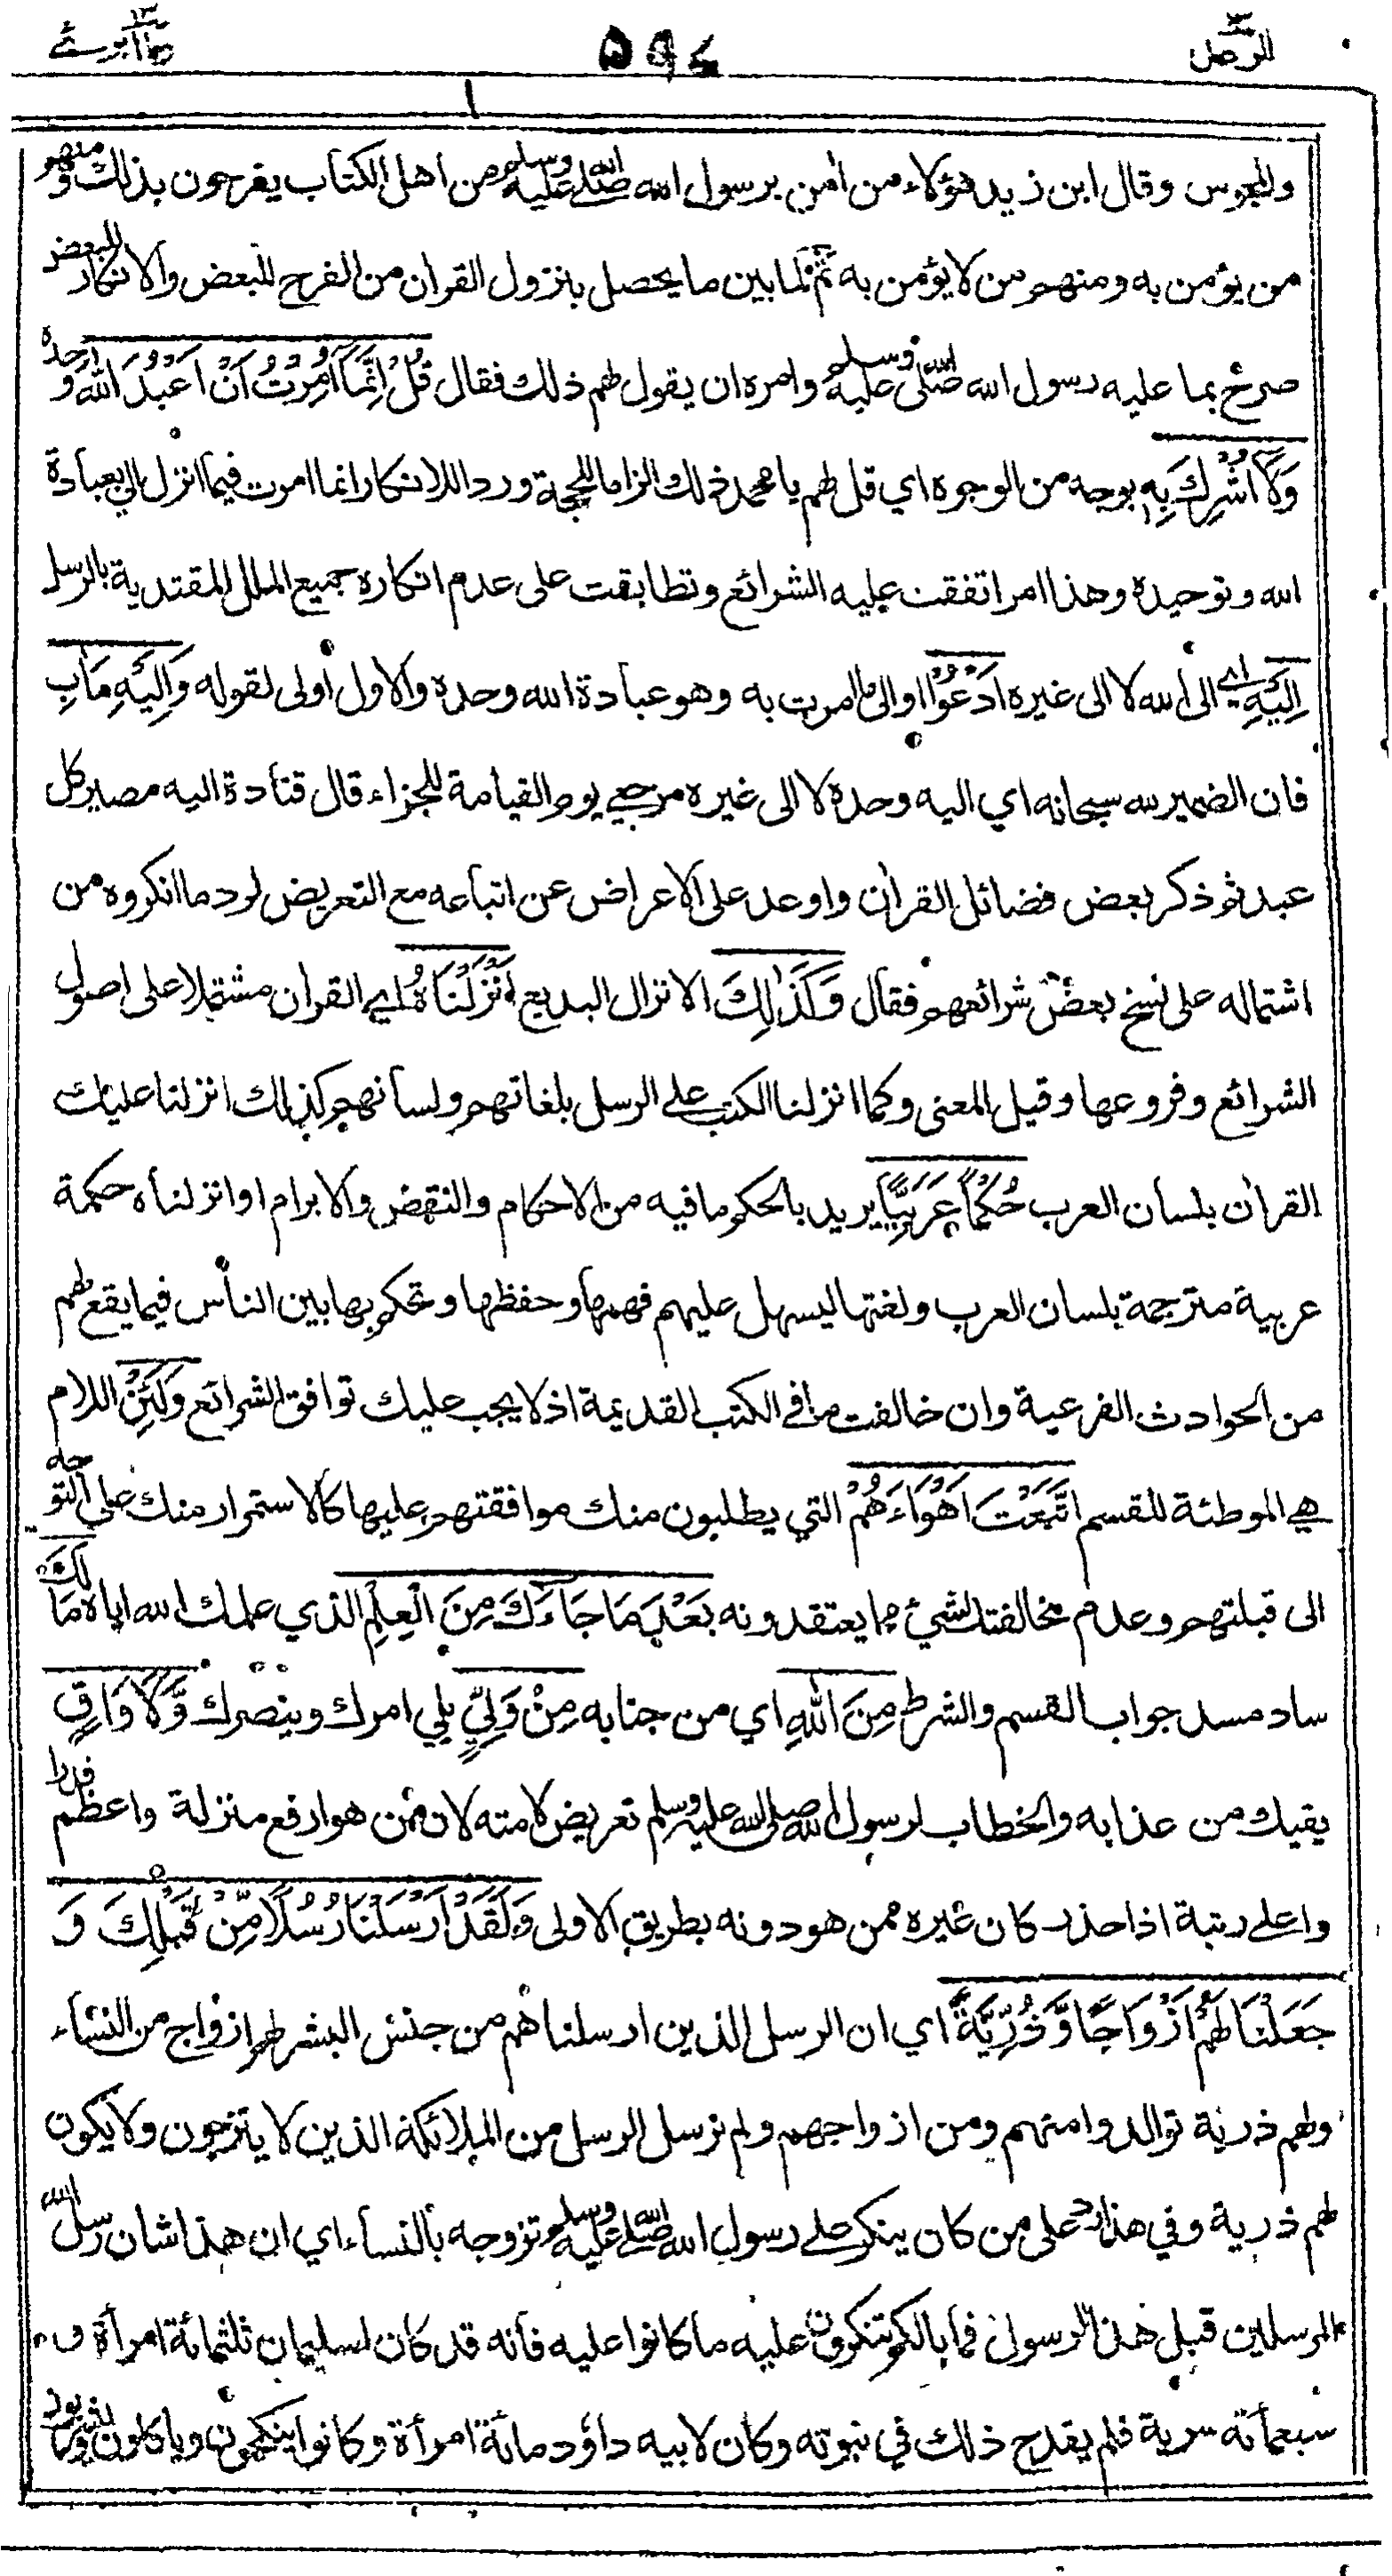 الرعد ١٣ ٥٩٤ وما ابرئ ١٣
والمجوس وقال ابن زيد هؤلاء من اٰمن برسول الله صلى الله عليه وسلم من اهل الكتاب يفرحون بذلك ومنهم
من يؤمن به ومنهم من لا يؤمن به ثم لما بين ما يحصل بنزول القرآن من الفرح للبعض والانكار للبعض
صرح بما عليه رسول الله صلى الله عليه وسلم وامره ان يقول لهم ذلك فقال قُلْ اِنَّمَآ اُمِرْتُ اَنْ اَعْبُدَ اللهَ وحده
وَلَآ اُشْرِكَ بِهٖ بوجه من الوجوه اي قل لهم يا محمد ذلك الزاما للحجة وردا للانكار انما امرت فيما انزل الي بعبادة
الله وتوحيده وهذا امر اتفقت عليه الشرائع وتطابقت على عدم انكاره جميع الملل المقتدية بالرسل
اِلَيْهِ اي الى الله لا الى غيره اَدْعُوْا او الى ما امرت به وهو عبادة الله وحده والاول اولى لقوله وَاِلَيْهِ مَاٰبِ
فان الضمير لله سبحانه اي اليه وحده لا الى غيره مرجعي يوم القيامة للجزاء قال قتادة اليه مصير كل
عبد ثم ذكر بعض فضائل القرآن واوعد على الاعراض عن اتباعه مع التعريض لرد ما انكروه من
اشتماله على نسخ بعض شرائعهم فقال وَكَذٰلِكَ الانزال البديع اَنْزَلْنَاهُ اي القرآن مشتملا على اصول
الشرائع وفروعها وقيل المعنى وكما انزلنا الكتب على الرسل بلغاتهم ولسانهم كذلك انزلنا عليك
القرآن بلسان العرب حُكْمًا عَرَبِيًّا يريد بالحكم ما فيه من الاحكام والنقض والابرام او انزلناه حكمة
عربية مترجمة بلسان العرب ولغتها ليسهل عليهم فهمها وحفظها وتحكم بها بين الناس فيما يقع لهم
من الحوادث الفرعية وان خالفت ما في الكتب القديمة اذ لا يجب عليك توافق الشرائع وَلَئِنِ اللام
هي الموطئة للقسم اتَّبَعْتَ اَهْوَآءَهُمْ التي يطلبون منك موافقتهم عليها كالاستمرار منك على التوجه
الى قبلتهم وعدم مخالفتك لشيء مما يعتقدونه بَعْدَ مَا جَآءَكَ مِنَ الْعِلْمِ الذي علمك الله اياه مَا لَكَ
ساد مسد جواب القسم والشرط مِنَ اللهِ اي من جنابه مِنْ وَلِيٍّ يلي امرك وينصرك وَّلَا وَاقٍ
يقيك من عذابه والخطاب لرسول الله صلى الله عليه وسلم تعريض لامته لان من هو ارفع منزلة واعظم قدرا
واعلى رتبة اذا حذر كان غيره ممن هو دونه بطريق الاولى وَلَقَدْ اَرْسَلْنَا رُسُلًا مِّنْ قَبْلِكَ وَ
جَعَلْنَا لَهُمْ اَزْوَاجًا وَّذُرِّيَّةً اي ان الرسل الذين ارسلناهم من جنس البشر لهم ازواج من النساء
ولهم ذرية توالدوا منهم ومن ازواجهم ولم نرسل الرسل من الملائكة الذين لا يتزوجون ولا يكون
لهم ذرية وفي هذا رد على من كان ينكر على رسول الله صلى الله عليه وسلم تزوجه بالنساء اي ان هذا شان رسل الله
المرسلين قبل هذا الرسول فما بالكم تنكرون عليه ما كانوا عليه فانه قد كان لسليمان ثلثمائة امرأة و
سبعمائة سرية فلم يقدح ذلك في نبوته وكان لابيه داؤد مائة امرأة وكانوا ينكحون وياكلون ويشربون